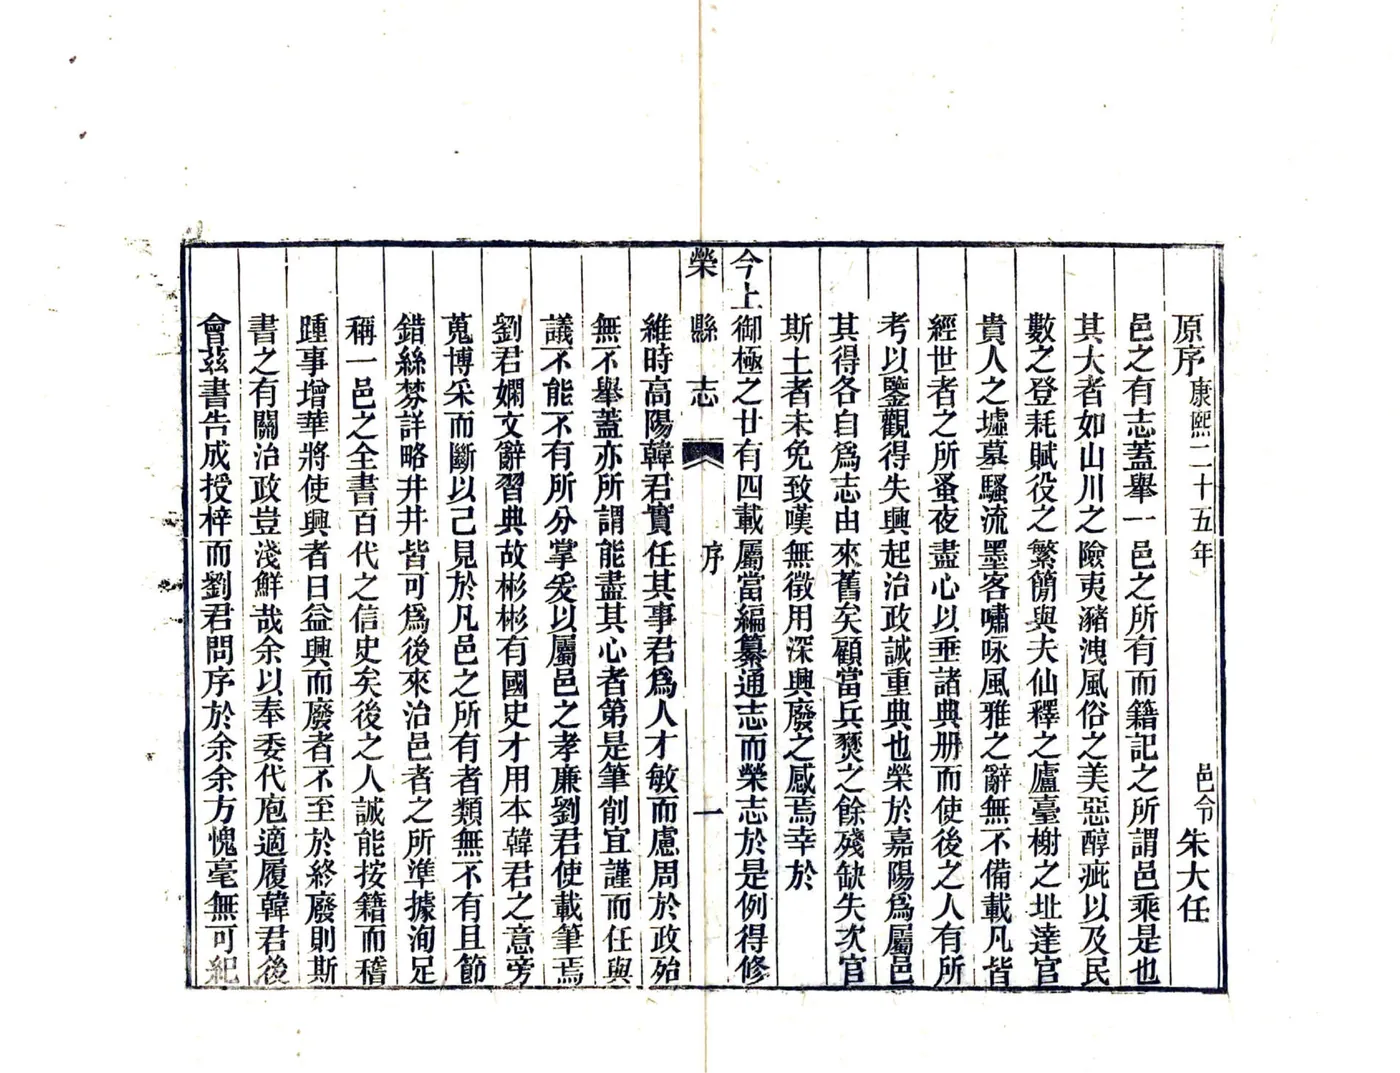 原序 康熙二十五年 邑令 朱大任
邑之有志蓋舉一邑之所有而籍記之所謂邑乘是也
其大者如山川之險夷瀦洩風俗之美惡醇疵以及民
數之登耗賦役之繁簡與夫仙釋之廬臺榭之址達官
貴人之墟墓騷流墨客嘯咏風雅之辭無不備載凡皆
經世者之所蚤夜盡心以垂諸典册而使後之人有所
考以鑒觀得失興起治政誠重典也榮於嘉陽爲屬邑
其得各自爲志由來舊矣顧當兵燹之餘殘缺失次官
斯土者未免致嘆無徵用深興廢之感焉幸於
今上御極之廿有四載屬當編纂通志而榮志於是例得修
榮縣志 序 一
維時高陽韓君實任其事君爲人才敏而慮周於政殆
無不舉蓋亦所謂能盡其心者第是筆削宜謹而任與
議不能不有所分掌爰以屬邑之孝廉劉君使載筆焉
劉君嫻文辭習典故彬彬有國史才用本韓君之意旁
蒐博采而斷以己見於凡邑之所有者類無不有且節
錯絲棼詳略井井皆可爲後來治邑者之所準據洵足
稱一邑之全書百代之信史矣後之人誠能按籍而稽
踵事增華將使興者日益興而廢者不至於終廢則斯
書之有關治政豈淺鮮哉余以奉委代庖適履韓君後
會茲書告成授梓而劉君問序於余余方愧毫無可紀